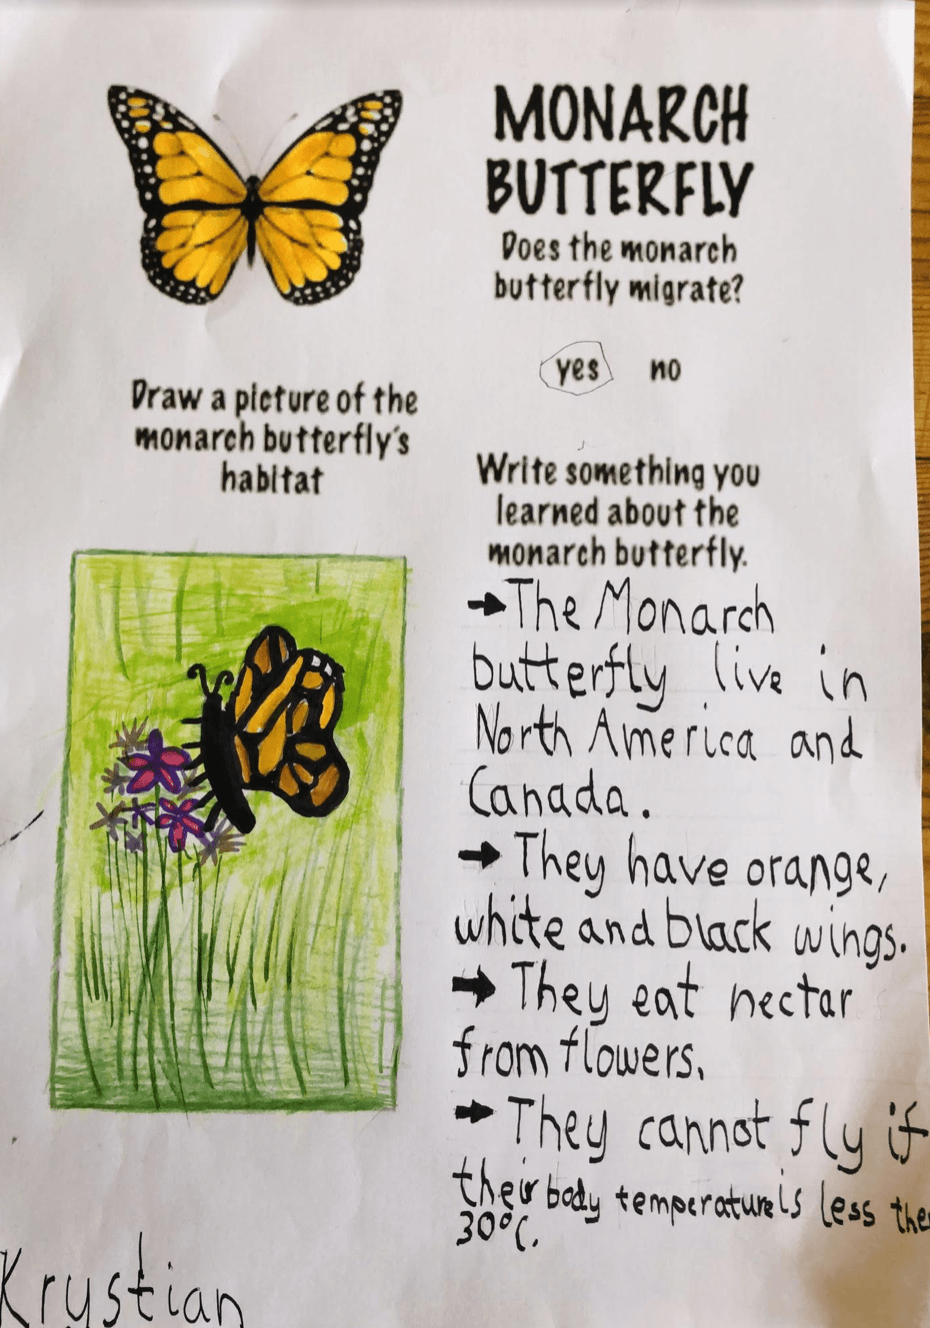 MONARCH
BUTTERFLY
Does the monarch
butterfly migrate?
yes no
Draw a picture of the
monarch butterfly's
habitat
Write something you
learned about the
monarch butterfly.
→The Monarch
butterfly live in
North America and
Canada.
→ They have orange,
white and black wings.
→ They eat nectar
from flowers.
→ They cannot fly if
their body temperature is less
30°C.
Krystian